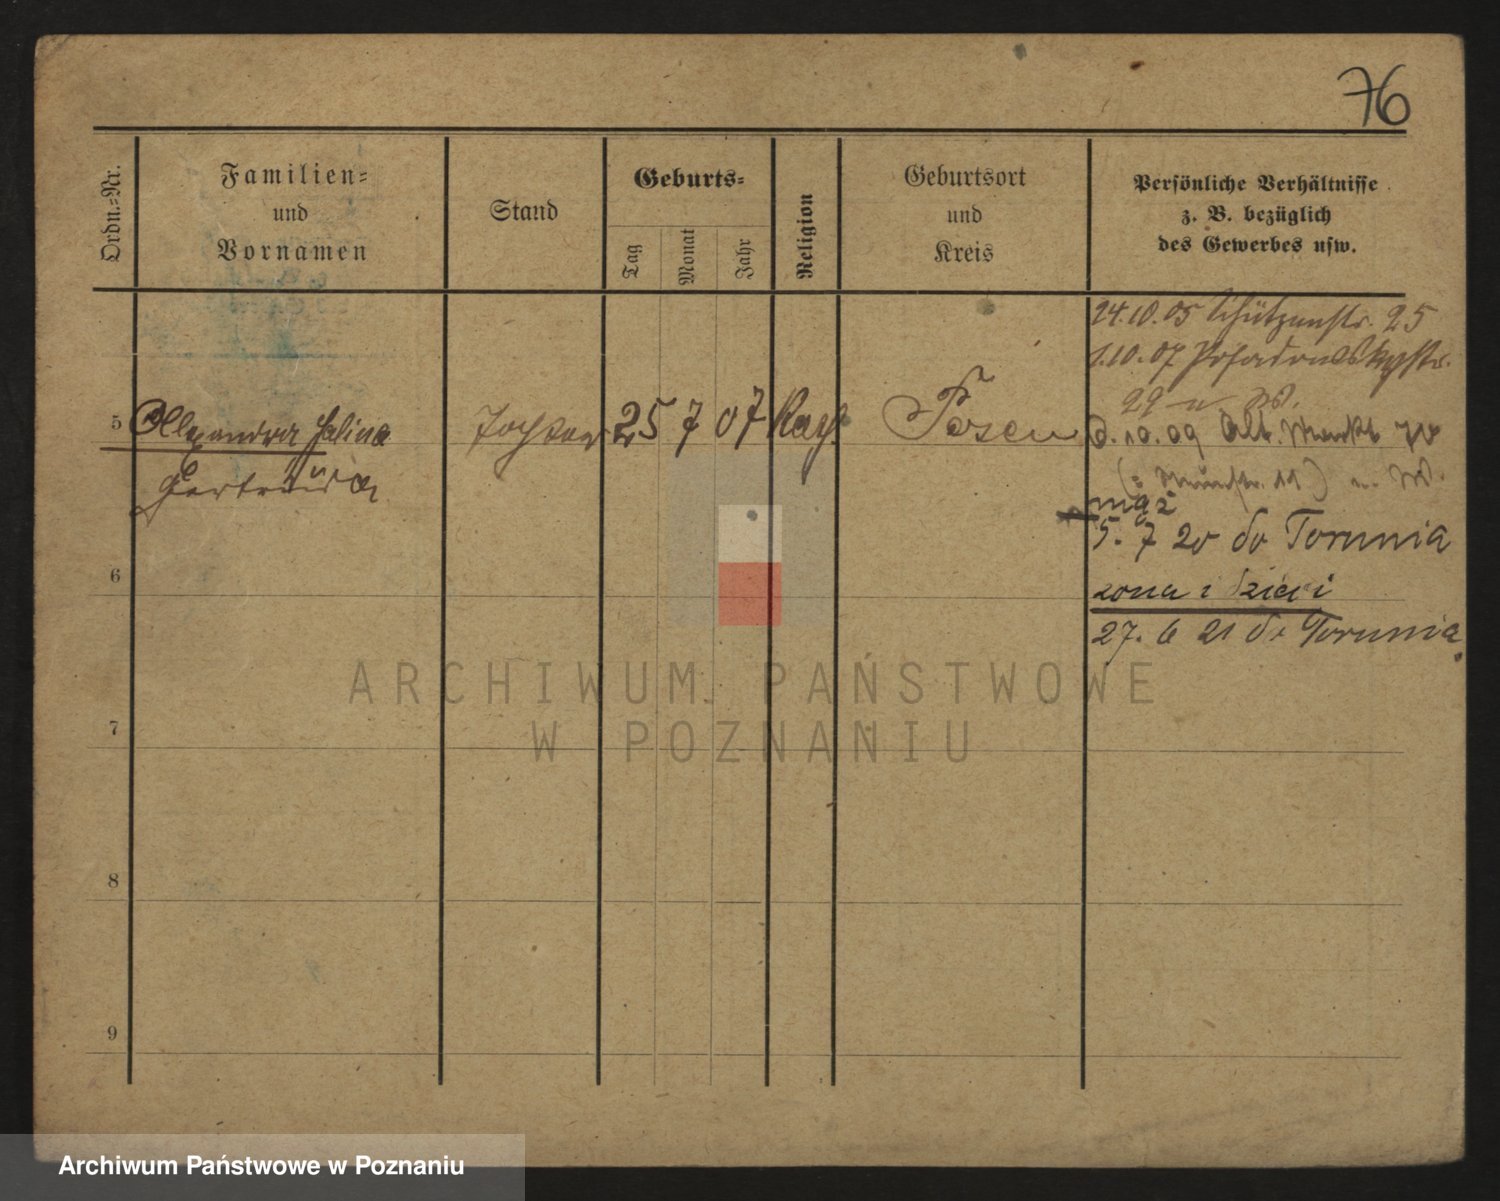 76
Ordn.-Nr.
Familien-
und
Vornamen
Stand
Geburts-
Tag
Monat
Jahr
Religion
Geburtsort
und
Kreis
Persönliche Verhältnisse
z. B. bezüglich
des Gewerbes usw.
24.10.05 Schützenstr. 25
1.10.07 Posadowskystr.
29 u W.
5 Alexandra Halina Tochter 25 7 07 Kath. Posen 6.10.09 Alt. Markt 70
Gertrud
11) u. W.
mąż
5. 7 20 do Torunia
6
żona i dzieci
27. 6 21 do Torunia
ARCHIWUM PAŃSTWOWE
W POZNANIU
7
8
9
Archiwum Państwowe w Poznaniu